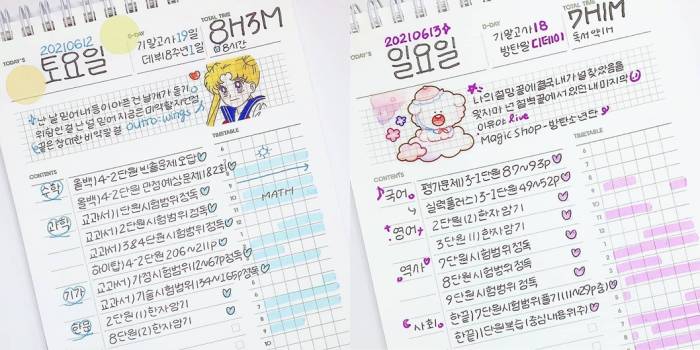 TODAY'S
20210612
토요일
D-DAY
기말고사 19일
데뷔8주년 1일
TOTAL TIME
8H3M
8시간
난 날 믿어 내 등이 아픈 건 날개가 돋기
위함인 걸 난 널 믿어 지금은 미약할지언정
끝은 창대한 비약일 걸 outro:wings
CONTENTS
TIMETABLE
수학
올백) 4-2단원 빈출문제 오답
올백) 4-2단원 만점예상문제 (82회)
과학
교과서) 1단원 시험범위 정독
교과서) 2단원 시험범위 정독
교과서) 3&4단원 시험범위 정독
하이탑) 4-2단원 206~211p
기가
교과서) 가정 시험범위 12~67p정독
교과서) 기술 시험범위 134~165p정독
한문
2단원 (1) 한자 암기
8단원 (2) 한자 암기
MATH
TODAY'S
20210613
일요일
D-DAY
기말고사 18
방탄일 디데이
TOTAL TIME
7H1M
독서 약 1H
나의 절망 끝에 결국 내가 널 찾았음을
잊지마 넌 절벽 끝에 서 있던 내 마지막
이유야 live
Magic shop - 방탄소년단
CONTENTS
TIMETABLE
국어
평가문제) 3-1단원 87~93p
실력플러스) 3-1단원 49~52p
영어
2단원 (1) 한자 암기
3단원 (1) 한자 암기
역사
7단원 시험범위 정독
8단원 시험범위 정독
9단원 시험범위 정독
사회
한끝) 7단원 시험범위 풀기
한끝) 1단원 복습